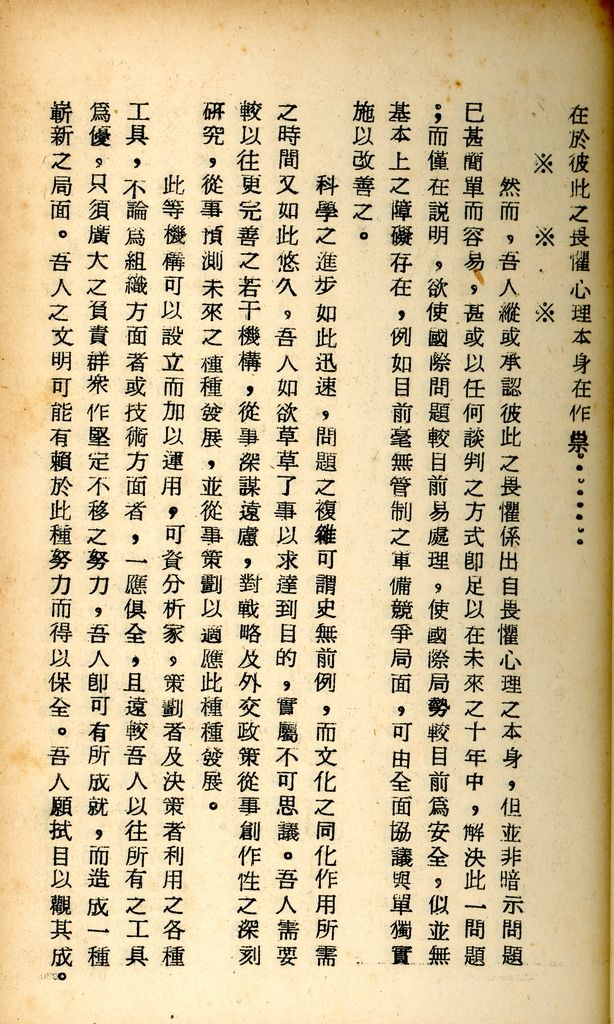 在於彼此之畏懼心理本身在作祟。。。。。。。
※　※　※
然而，吾人縱或承認彼此之畏懼係出自畏懼心理之本身，但並非暗示問題
已甚簡單而容易，甚或以任何談判之方式卽足以在未來之十年中，解決此一問題
；而僅在説明，欲使國際問題較目前易處理，使國際局勢較目前爲安全，似並無
基本上之障礙存在，例如目前毫無管制之軍備競爭局面，可由全面協議與單獨實
施以改善之。
科學之進步如此迅速，問題之複雜可謂史無前例，而文化之同化作用所需
之時間又如此悠久，吾人如欲草草了事以求達到目的，實屬不可思議。吾人需要
較以往更完善之若干機構，從事深謀遠慮，對戰略及外交政策從事創作性之深刻
研究，從事預測未來之種種發展，並從事策劃以適應此種種發展。
此等機構可以設立而加以運用，可資分析家，策劃者及決策者利用之各種
工具，不論爲組織方面者或技術方面者，一應俱全，且遠較吾人以往所有之工具
爲優，只須廣大之負責群衆作堅定不移之努力，吾人卽可有所成就，而造成一種
嶄新之局面。吾人之文明可能有賴於此種努力而得以保全。吾人願拭目以觀其成。